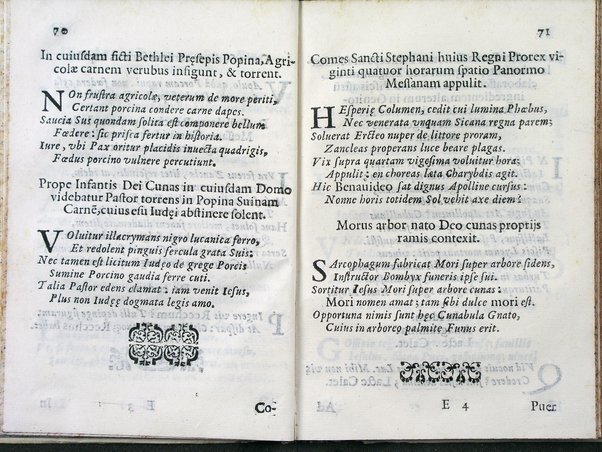 70
In cuiusdam ficti Bethlei Præsepis Popina, Agri-
colæ carnem verubus infigunt, & torrent.
NOn frustra agricolæ, veterum de more periti,
Certant porcina condere carne dapes.
Saucia Sus quondam solita est componere bellum
Fœdere: sic prisca fertur in historia.
Iure, vbi Pax oritur placidis inuecta quadrigis,
Fœdus porcino vulnere percutiunt.
Prope Infantis Dei Cunas in cuiusdam Domo
videbatur Pastor torrens in Popina Suinam
Carnē, cuius esu Iudęi abstinere solent.
VOluitur illacrymans nigro lucanica ferro,
Et redolent pinguis fercula grata Suis:
Nec tamen est licitum Iudęo de grege Porcis
Sumine Porcino gaudia ferre cuti.
Talia Pastor edens clamat: iam venit Iesus,
Plus non Iudęę dogmata legis amo.
E 3
Co-
71
Comes Sancti Stephani huius Regni Prorex vi-
ginti quatuor horarum spatio Panormo
Messanam appulit.
HEsperię Columen, cedit cui lumina Phœbus,
Nec venerata vnquam Sicana regna parem;
Soluerat Ercteo nuper de littore proram,
Zancleas properans luce beare plagas.
Vix supra quartam vigesima voluitur hora;
Appulit: en choreas læta Charybdis agit.
Hic Benauideo sat dignus Apolline cursus:
Nonne horis totidem Sol vehit axe diem?
Morus arbor nato Deo cunas proprijs
ramis contexit.
SArcophagum fabricat Mori super arbore sidens,
Instructor Bombyx funeris ipse sui.
Sortitur Iesus Mori super arbore cunas:
Mori nomen amat; tam sibi dulce mori est.
Opportuna nimis sunt hęc Cunabula Gnato,
Cuius in arboreo palmite Funus erit.
E 4
Puer